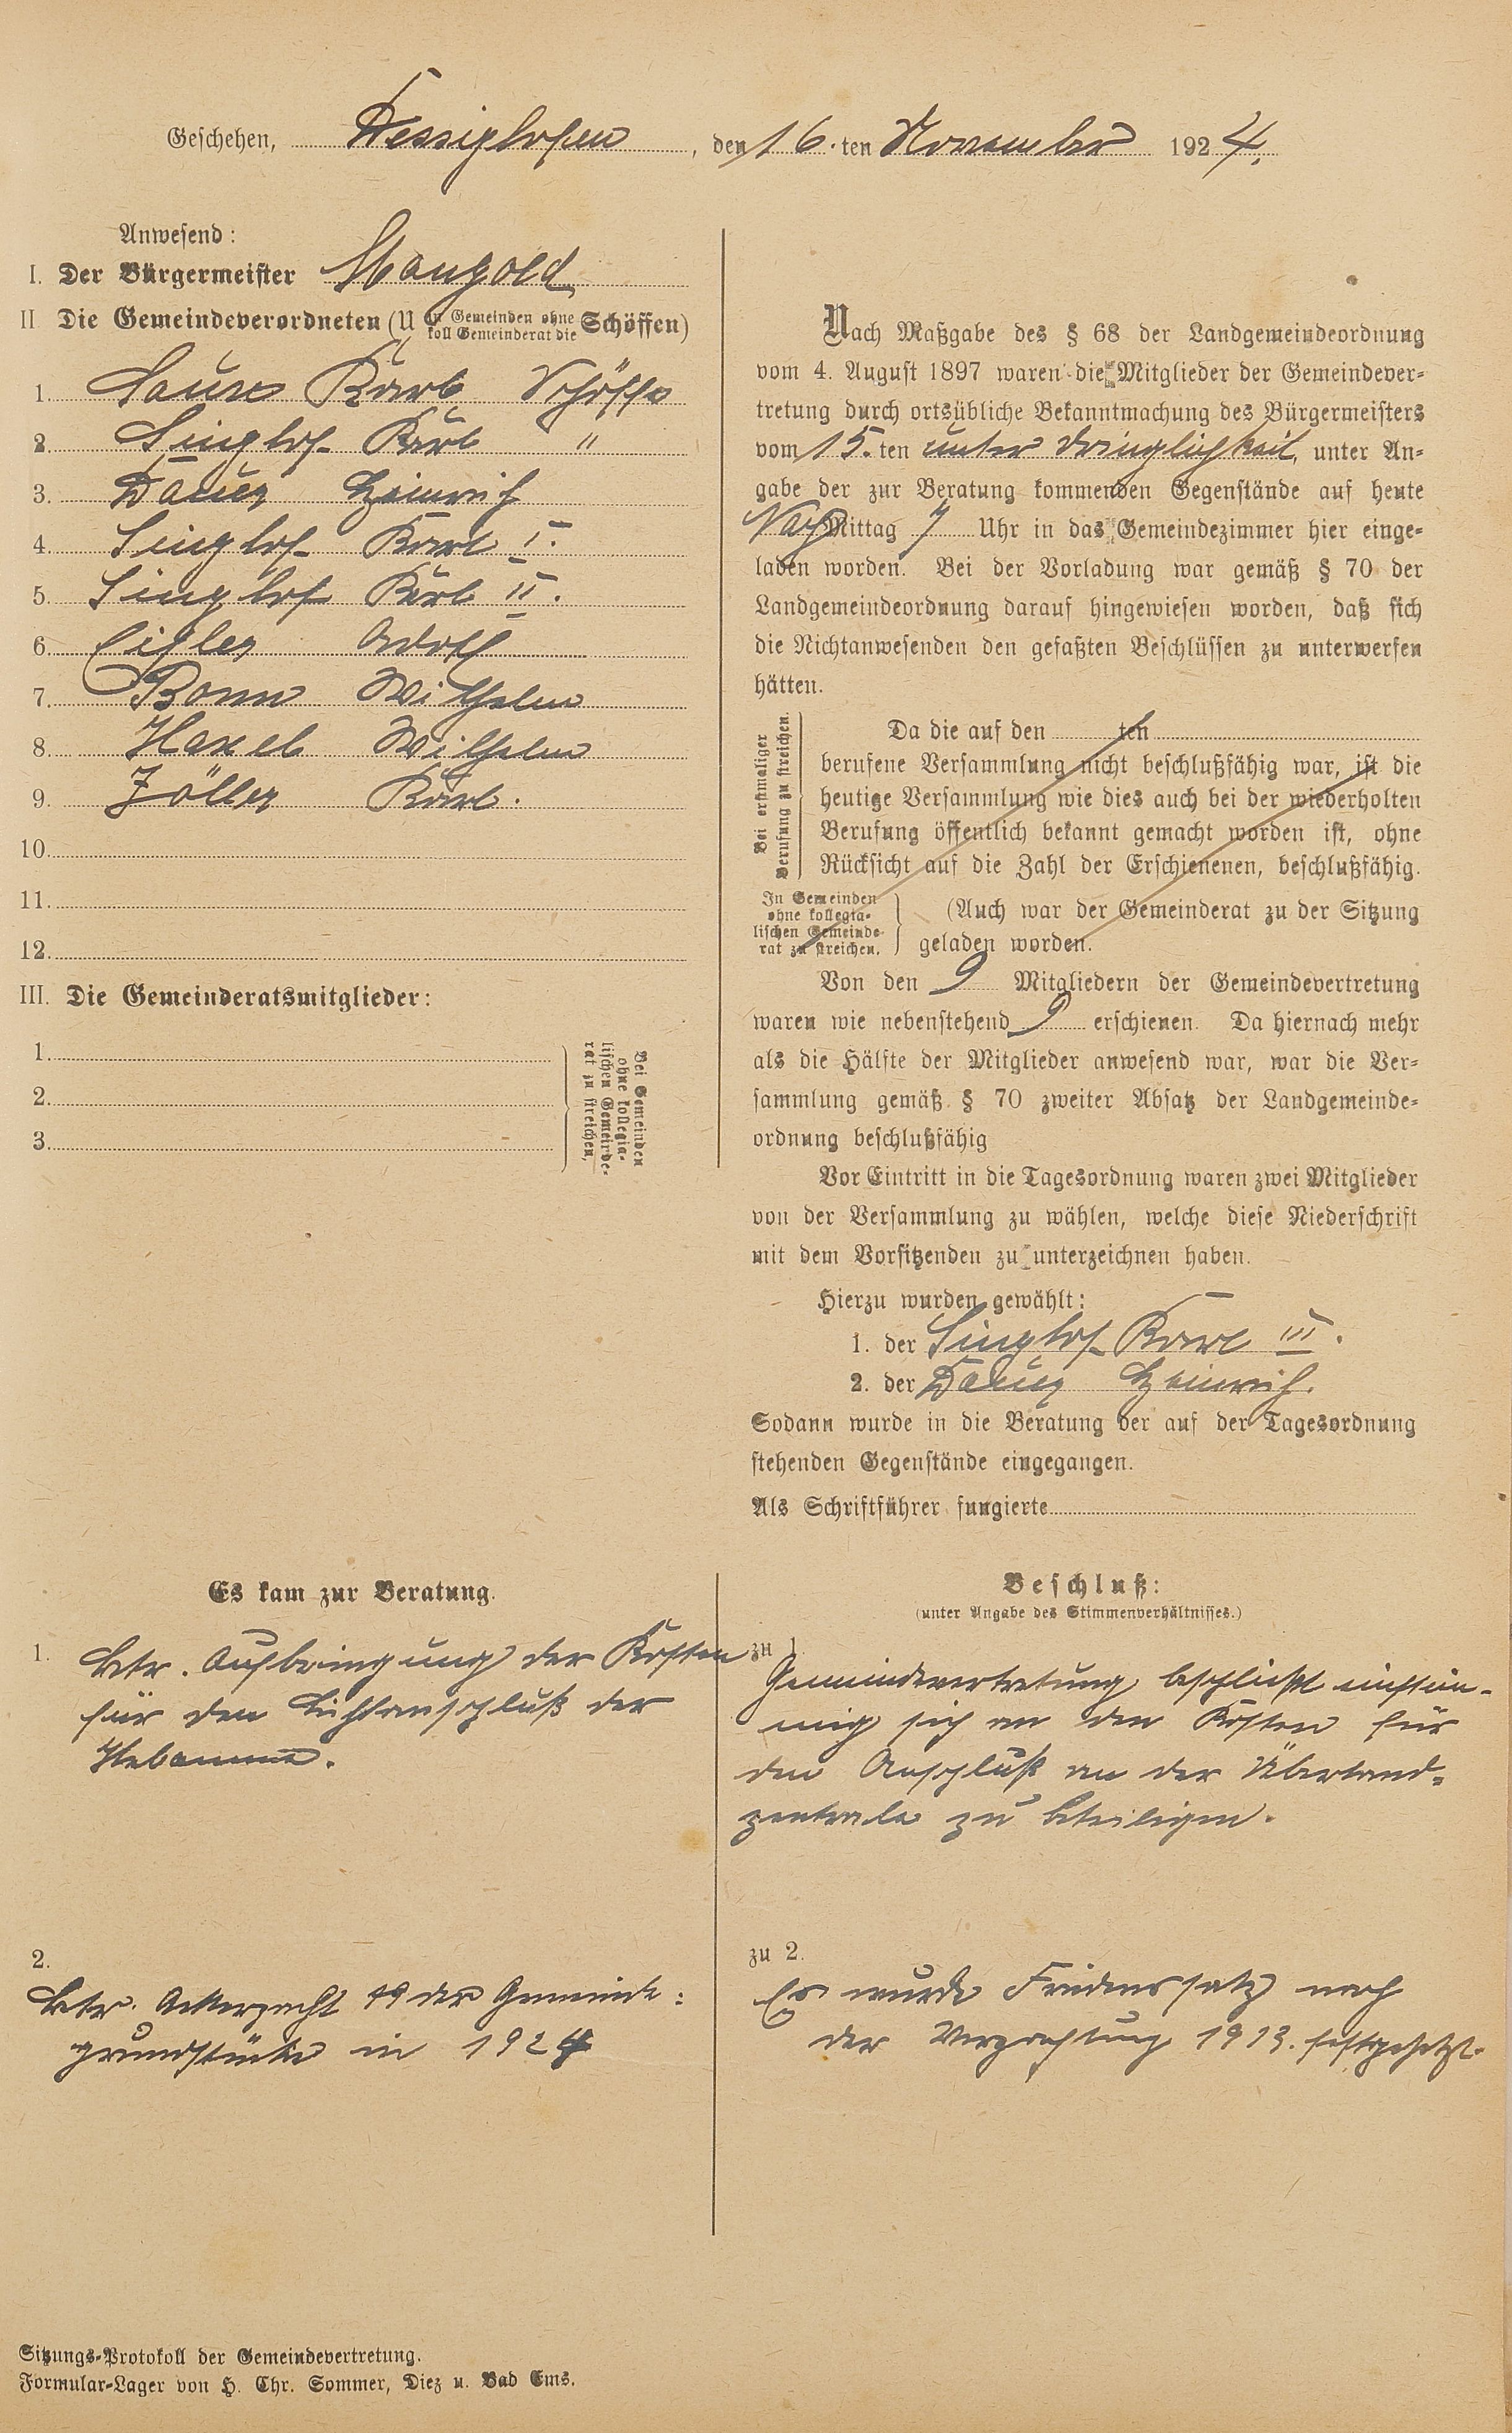 Geschehen, Dessighofen, den 16.ten November 1924.
Anwesend:
I. Der Bürgermeister Mangold
II Die Gemeindeverordneten (U in Gemeinden ohne koll Gemeinderat die Schöffen)
1. Karl Schöffe
2. Singhof Karl "
3. Heinrich
4. Singhof Karl I.
5. Singhof Karl II.
6. Adolf
7. Bonn Wilhelm
8. Wilhelm
9. Zöller Karl.
10.
11.
12.
III. Die Gemeinderatsmitglieder:
1.
2.
3.
Bei Gemeinden
ohne kollegia-
lischen Gemeinde-
rat zu streichen.
Nach Maßgabe des § 68 der Landgemeindeordnung
vom 4. August 1897 waren die Mitglieder der Gemeindever-
tretung durch ortsübliche Bekanntmachung des Bürgermeisters
vom 15.ten unter Dringlichkeit, unter An-
gabe der zur Beratung kommenden Gegenstände auf heute
Nachmittag 7 Uhr in das Gemeindezimmer hier einge-
laden worden. Bei der Vorladung war gemäß § 70 der
Landgemeindeordnung darauf hingewiesen worden, daß sich
die Nichtanwesenden den gefaßten Beschlüssen zu unterwerfen
hätten.
Bei erstmaliger
Berufung zu streichen.
Da die auf den ten
berufene Versammlung nicht beschlußfähig war, ist die
heutige Versammlung wie dies auch bei der wiederholten
Berufung öffentlich bekannt gemacht worden ist, ohne
Rücksicht auf die Zahl der Erschienenen, beschlußfähig.
In Gemeinden
ohne kollegia-
lischen Gemeinde-
rat zu streichen.
(Auch war der Gemeinderat zu der Sitzung
geladen worden.
Von den 9 Mitgliedern der Gemeindevertretung
waren wie nebenstehend 9 erschienen. Da hiernach mehr
als die Hälfte der Mitglieder anwesend war, war die Ver-
sammlung gemäß § 70 zweiter Absatz der Landgemeinde-
ordnung beschlußfähig
Vor Eintritt in die Tagesordnung waren zwei Mitglieder
von der Versammlung zu wählen, welche diese Niederschrift
mit dem Vorsitzenden zu unterzeichnen haben.
Hierzu wurden gewählt:
1. der Singhof Karl III.
2. der Heinrich.
Sodann wurde in die Beratung der auf der Tagesordnung
stehenden Gegenstände eingegangen.
Als Schriftführer fungierte
Es kam zur Beratung.
1. Betr. Aufbringung der Kosten
für den Lichtanschluß der
Hebamme.
2.
Betr. Ackerpacht der Gemeinde-
grundstücke in 1924
Beschluß:
(unter Angabe des Stimmenverhältnisses.)
zu 1.
Gemeindevertretung beschließt einstim-
mig sich an den Kosten für
den Anschluß an der Überland-
zentrale zu beteiligen.
zu 2.
Es wurde Friedenssatz nach
der Verpachtung 1913. festgesetzt.
Sitzungs-Protokoll der Gemeindevertretung.
Formular-Lager von H. Chr. Sommer, Diez u. Bad Ems.